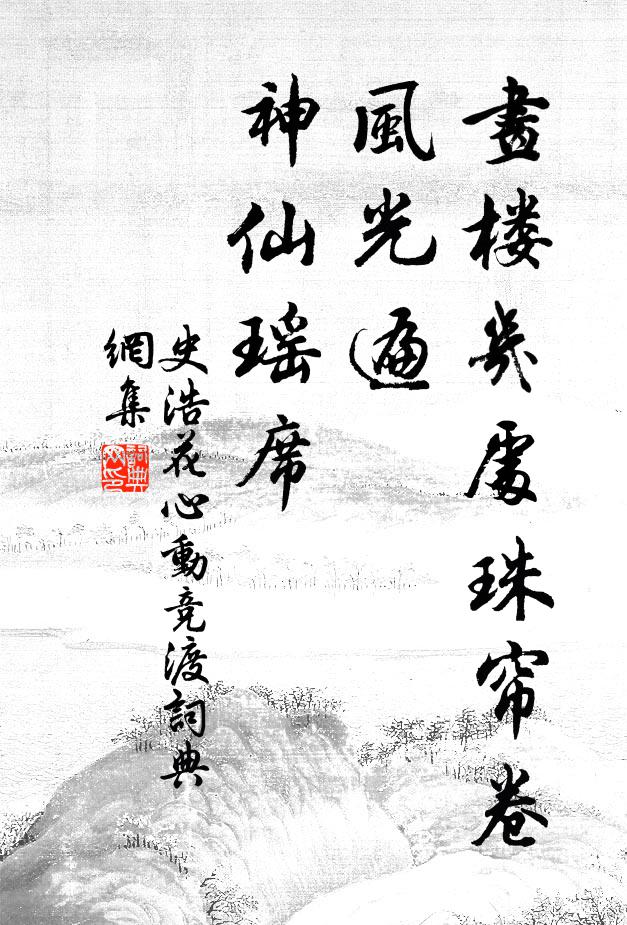 畫楼幾處珠帘卷
風光遍
神仙瑶席
史浩花心動竞渡詞典
網集
詞典
网印